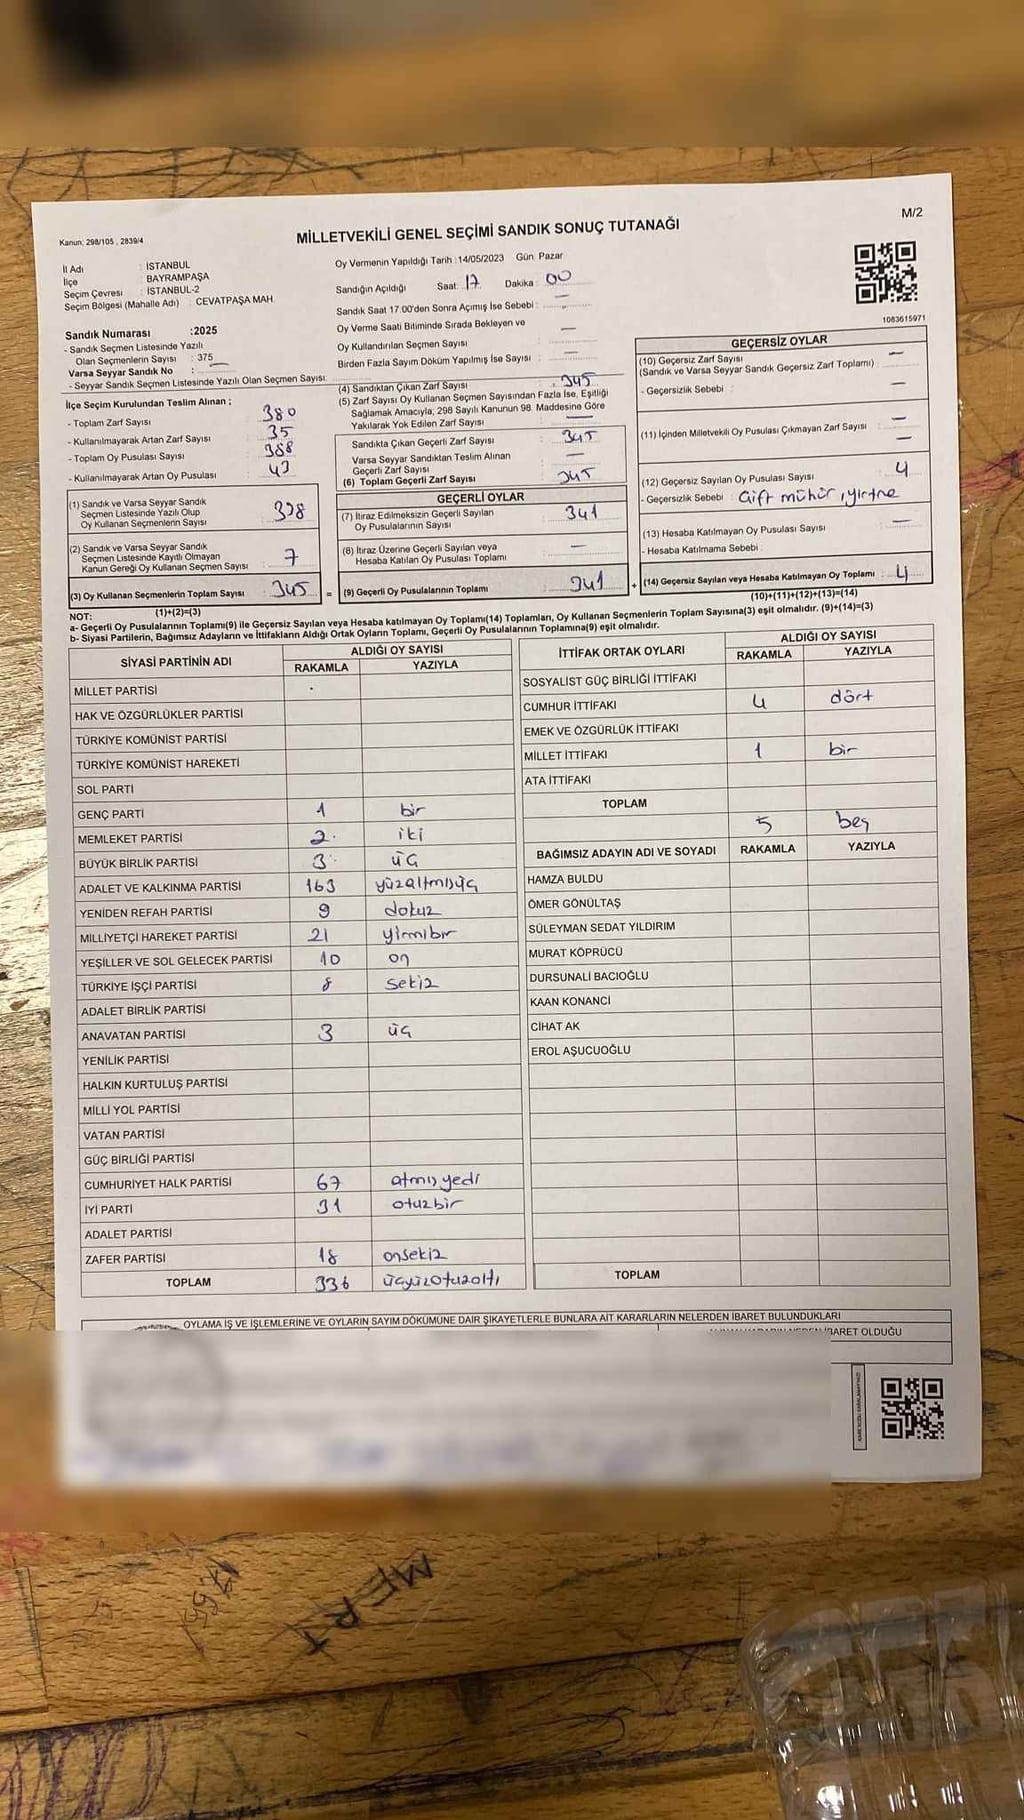 M/2
Kanun: 298/105 , 2839/4
MİLLETVEKİLİ GENEL SEÇİMİ SANDIK SONUÇ TUTANAĞI
İl Adı : İSTANBUL
İlçe : BAYRAMPAŞA
Seçim Çevresi : İSTANBUL-2
Seçim Bölgesi (Mahalle Adı) : CEVATPAŞA MAH.
Sandık Numarası :2025
- Sandık Seçmen Listesinde Yazılı
Olan Seçmenlerin Sayısı : 375
Varsa Seyyar Sandık No : —
- Seyyar Sandık Seçmen Listesinde Yazılı Olan Seçmen Sayısı:
Oy Vermenin Yapıldığı Tarih :14/05/2023 Gün: Pazar
Sandığın Açıldığı Saat: 17 Dakika: 00
Sandık Saat 17:00'den Sonra Açımış İse Sebebi : —
Oy Verme Saati Bitiminde Sırada Bekleyen ve
Oy Kullandırılan Seçmen Sayısı : —
Birden Fazla Sayım Döküm Yapılmış İse Sayısı : —
1083615971
İlçe Seçim Kurulundan Teslim Alınan ;
- Toplam Zarf Sayısı : 380
- Kullanılmayarak Artan Zarf Sayısı : 35
- Toplam Oy Pusulası Sayısı : 388
- Kullanılmayarak Artan Oy Pusulası : 43
(1) Sandık ve Varsa Seyyar Sandık
Seçmen Listesinde Yazılı Olup
Oy Kullanan Seçmenlerin Sayısı : 338
(2) Sandık ve Varsa Seyyar Sandık
Seçmen Listesinde Kayıtlı Olmayan
Kanun Gereği Oy Kullanan Seçmen Sayısı : 7
(3) Oy Kullanan Seçmenlerin Toplam Sayısı : 345
(1)+(2)=(3)
(4) Sandıktan Çıkan Zarf Sayısı : 345
(5) Zarf Sayısı Oy Kullanan Seçmen Sayısından Fazla İse, Eşitliği
Sağlamak Amacıyla, 298 Sayılı Kanunun 98. Maddesine Göre
Yakılarak Yok Edilen Zarf Sayısı : —
Sandıkta Çıkan Geçerli Zarf Sayısı : 345
Varsa Seyyar Sandıktan Teslim Alınan
Geçerli Zarf Sayısı : —
(6) Toplam Geçerli Zarf Sayısı : 345
GEÇERLİ OYLAR
(7) İtiraz Edilmeksizin Geçerli Sayılan
Oy Pusulalarının Sayısı : 341
(8) İtiraz Üzerine Geçerli Sayılan veya
Hesaba Katılan Oy Pusulası Toplamı : —
= (9) Geçerli Oy Pusulalarının Toplamı : 341 +
GEÇERSİZ OYLAR
(10) Geçersiz Zarf Sayısı : —
(Sandık ve Varsa Seyyar Sandık Geçersiz Zarf Toplamı)
- Geçersizlik Sebebi : —
(11) İçinden Milletvekili Oy Pusulası Çıkmayan Zarf Sayısı : —
—
(12) Geçersiz Sayılan Oy Pusulası Sayısı : 4
- Geçersizlik Sebebi : Çift mühür, yırtne
(13) Hesaba Katılmayan Oy Pusulası Sayısı : —
- Hesaba Katılmama Sebebi :
(14) Geçersiz Sayılan veya Hesaba Katılmayan Oy Toplamı : 4
(10)+(11)+(12)+(13)=(14)
NOT:
a- Geçerli Oy Pusulalarının Toplamı(9) ile Geçersiz Sayılan veya Hesaba katılmayan Oy Toplamı(14) Toplamları, Oy Kullanan Seçmenlerin Toplam Sayısına(3) eşit olmalıdır. (9)+(14)=(3)
b- Siyasi Partilerin, Bağımsız Adayların ve İttifakların Aldığı Ortak Oyların Toplamı, Geçerli Oy Pusulalarının Toplamına(9) eşit olmalıdır.
SİYASİ PARTİNİN ADI ALDIĞI OY SAYISI
RAKAMLA YAZIYLA
MİLLET PARTİSİ
HAK VE ÖZGÜRLÜKLER PARTİSİ
TÜRKİYE KOMÜNİST PARTİSİ
TÜRKİYE KOMÜNİST HAREKETİ
SOL PARTİ
GENÇ PARTİ 1 bir
MEMLEKET PARTİSİ 2 iki
BÜYÜK BİRLİK PARTİSİ 3 üç
ADALET VE KALKINMA PARTİSİ 163 yüzaltmışüç
YENİDEN REFAH PARTİSİ 9 dokuz
MİLLİYETÇİ HAREKET PARTİSİ 21 yirmibir
YEŞİLLER VE SOL GELECEK PARTİSİ 10 on
TÜRKİYE İŞÇİ PARTİSİ 8 sekiz
ADALET BİRLİK PARTİSİ
ANAVATAN PARTİSİ 3 üç
YENİLİK PARTİSİ
HALKIN KURTULUŞ PARTİSİ
MİLLİ YOL PARTİSİ
VATAN PARTİSİ
GÜÇ BİRLİĞİ PARTİSİ
CUMHURİYET HALK PARTİSİ 67 atmışyedi
İYİ PARTİ 31 otuzbir
ADALET PARTİSİ
ZAFER PARTİSİ 18 onsekiz
TOPLAM 336 üçyüzotuzaltı
İTTİFAK ORTAK OYLARI ALDIĞI OY SAYISI
RAKAMLA YAZIYLA
SOSYALİST GÜÇ BİRLİĞİ İTTİFAKI
CUMHUR İTTİFAKI 4 dört
EMEK VE ÖZGÜRLÜK İTTİFAKI
MİLLET İTTİFAKI 1 bir
ATA İTTİFAKI
TOPLAM 5 beş
BAĞIMSIZ ADAYIN ADI VE SOYADI RAKAMLA YAZIYLA
HAMZA BULDU
ÖMER GÖNÜLTAŞ
SÜLEYMAN SEDAT YILDIRIM
MURAT KÖPRÜCÜ
DURSUNALİ BACIOĞLU
KAAN KONANCİ
CİHAT AK
EROL AŞUCUOĞLU
TOPLAM
OYLAMA İŞ VE İŞLEMLERİNE VE OYLARIN SAYIM DÖKÜMÜNE DAİR ŞİKAYETLERLE BUNLARA AİT KARARLARIN NELERDEN İBARET BULUNDUKLARI
İBARET OLDUĞU
MERT